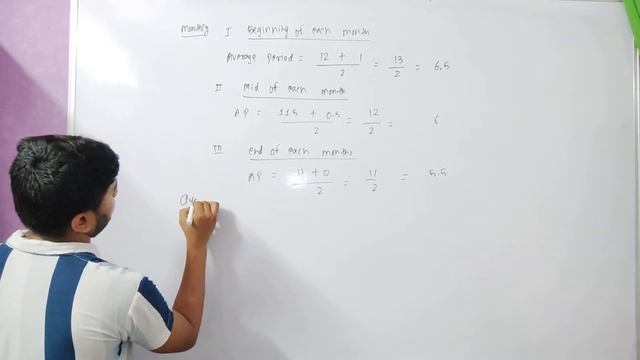 Monthly I Beginning of each month
Average Period = 12 + 1 / 2 = 13 / 2 = 6.5
II Mid of each month
AP = 11.5 + 0.5 / 2 = 12 / 2 = 6
III end of each months
AP = 11 + 0 / 2 = 11 / 2 = 5.5